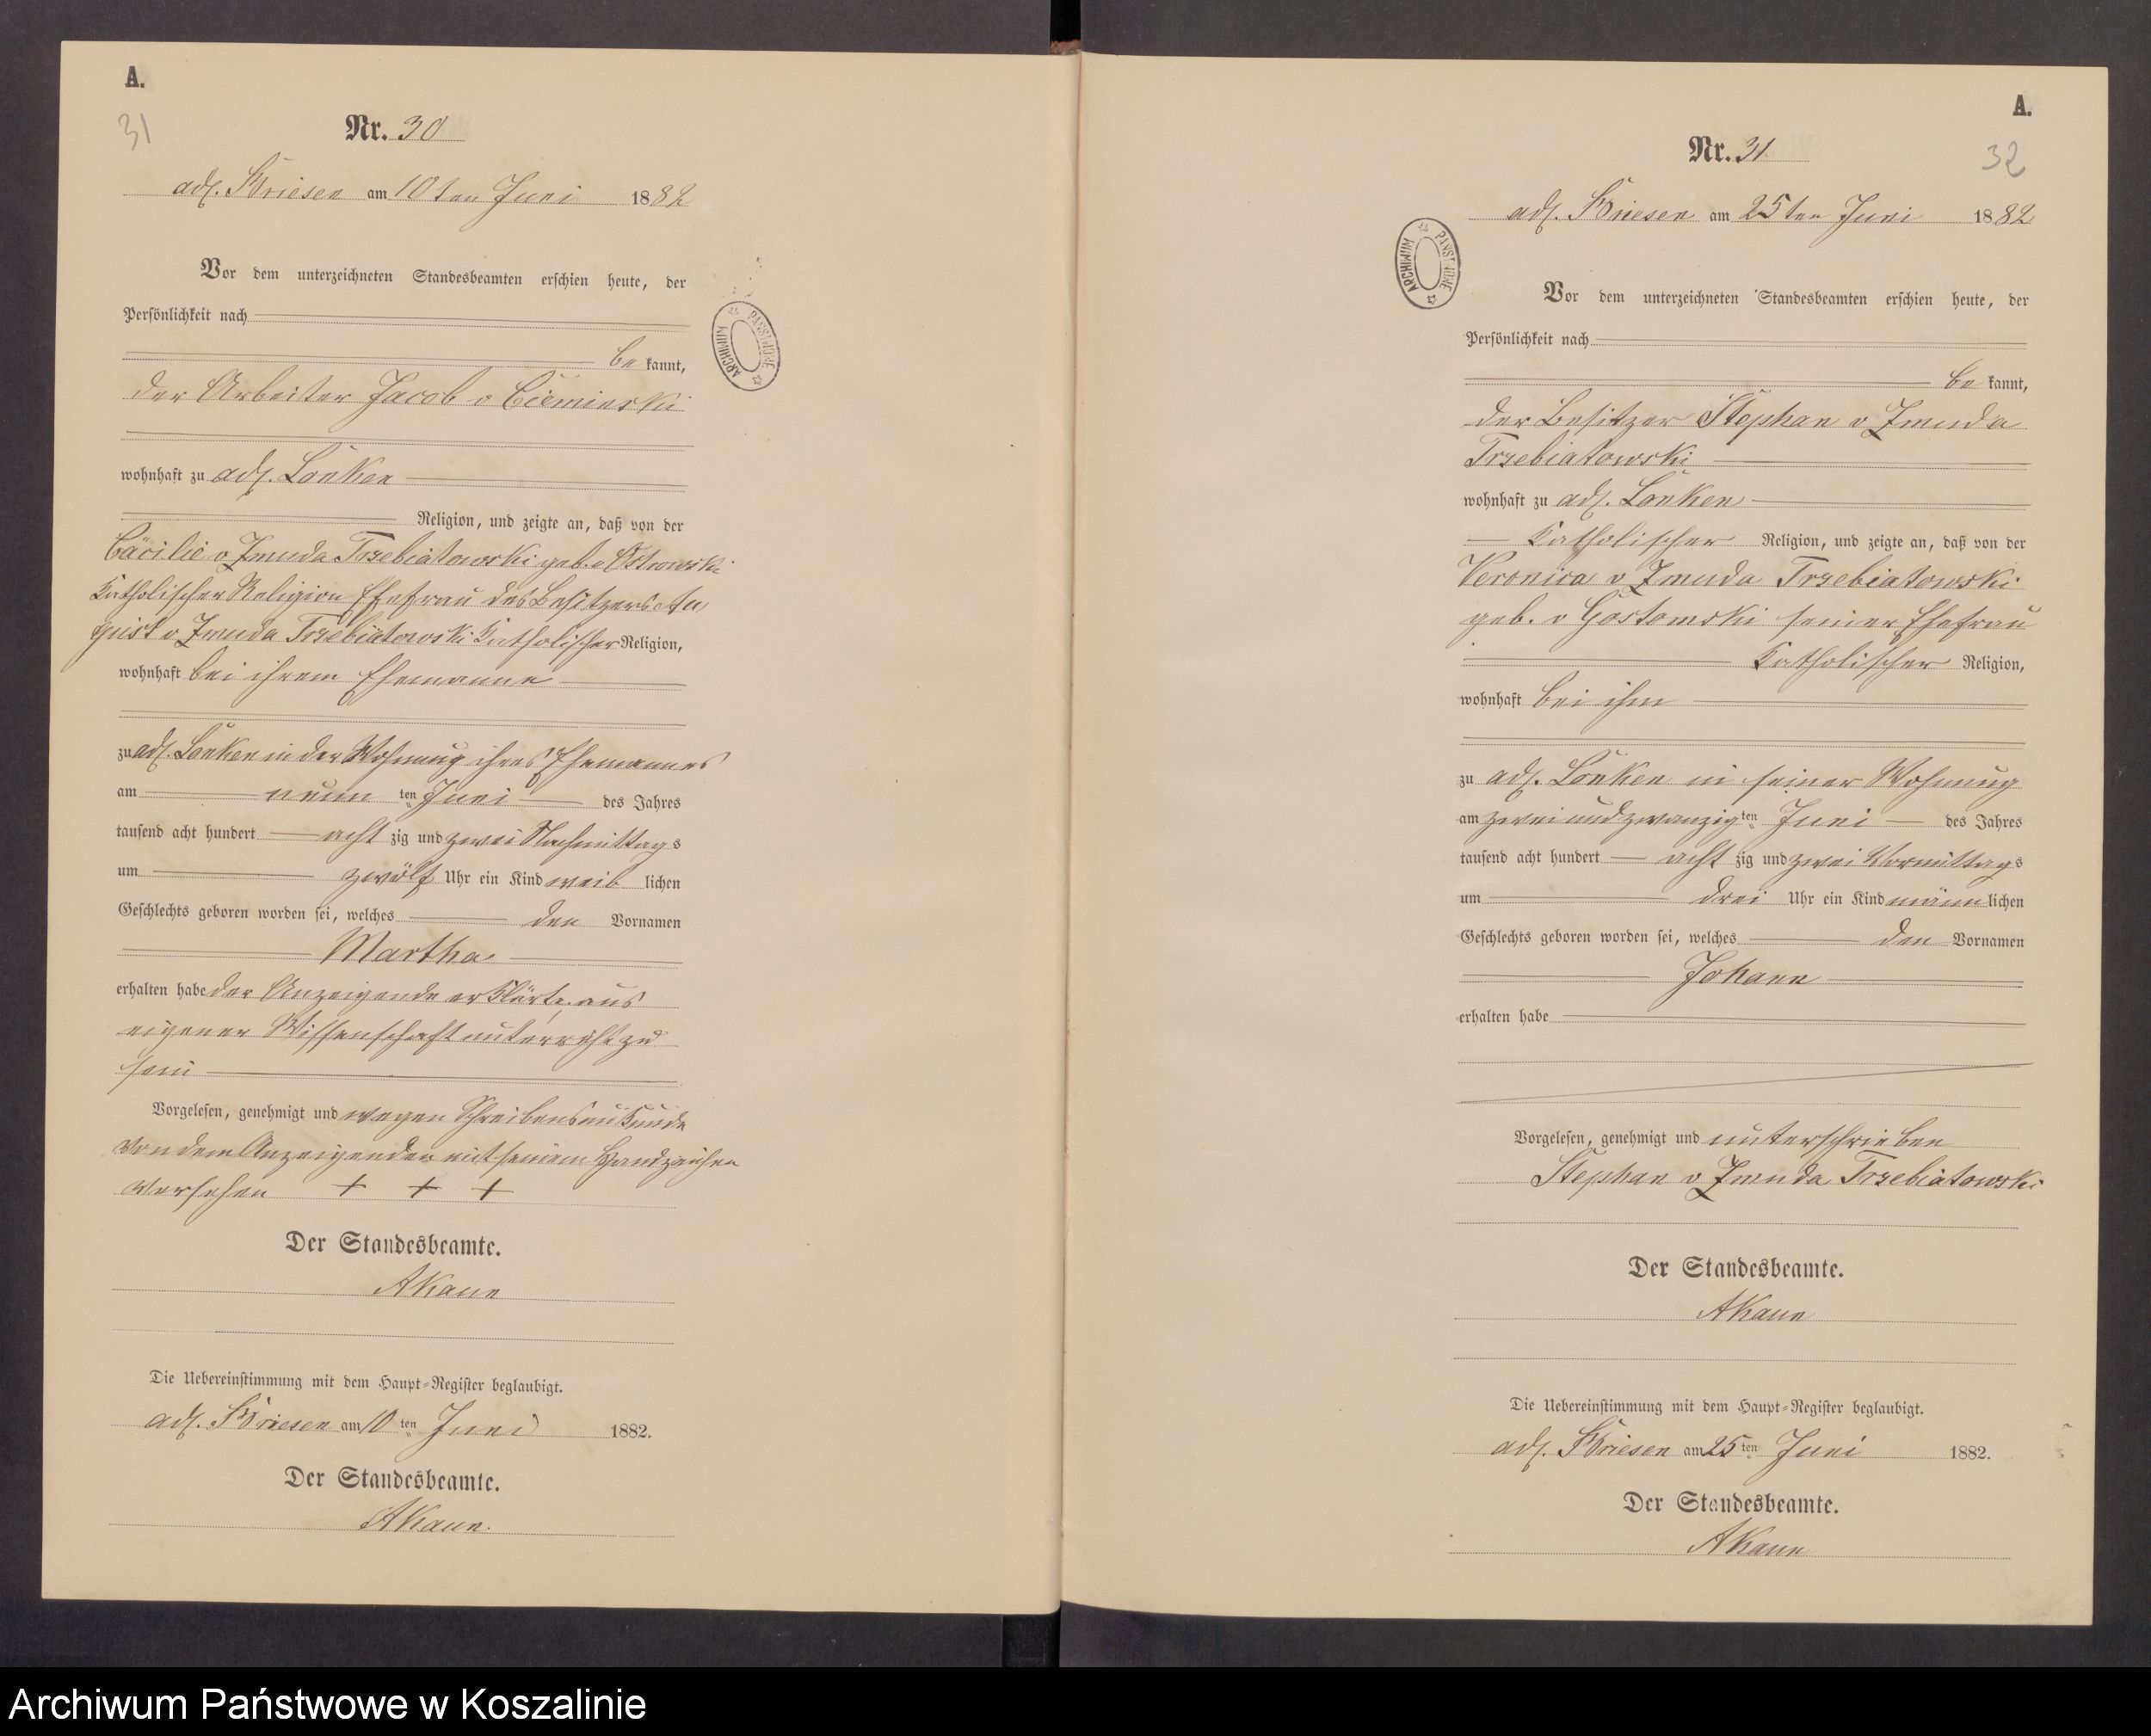 A.
31
Nr. 30
adl. Briesen am 10ten Juni 1882
Vor dem unterzeichneten Standesbeamten erschien heute, der
Persönlichkeit nach
be kannt,
der Arbeiter Jacob v Cieminski
wohnhaft zu adl. Lonken
Religion, und zeigte an, daß von der
Cäcilie v Zmuda Trzebiatowski geb. v Ostrowski
Katholischer Religion Ehefrau des Besitzers Au
gust v Zmuda Trzebiatowski Katholischer Religion,
wohnhaft bei ihrem Ehemanne
zu adl. Lonken in der Wohnung ihres Ehemannes
am neun ten Juni des Jahres
tausend acht hundert acht zig und zwei Nachmittags
um zwölf Uhr ein Kind weib lichen
Geschlechts geboren worden sei, welches den Vornamen
Martha
erhalten habe der Anzeigende erklärte, aus
eigener Wissenschaft unterricht zu
sein
Vorgelesen, genehmigt und wegen Schreibensunkunde
von dem Anzeigenden mit seinem Handzeichen
versehen + + +
Der Standesbeamte.
AKaun
Die Uebereinstimmung mit dem Haupt-Register beglaubigt.
adl. Briesen am 10 ten Juni 1882.
Der Standesbeamte.
AKaun.
ARCHIWUM PAŃSTWOWE
A.
32
Nr. 31
adl. Briesen am 25ten Juni 1882
ARCHIWUM PAŃSTWOWE
Vor dem unterzeichneten Standesbeamten erschien heute, der
Persönlichkeit nach
be kannt,
der Besitzer Stephan v Zmuda
Trzebiatowski
wohnhaft zu adl. Lonken
Katholischer Religion, und zeigte an, daß von der
Veronica v Zmuda Trzebiatowski
geb. v Gostomski seiner Ehefrau
Katholischer Religion,
wohnhaft bei ihm
zu adl. Lonken in seiner Wohnung
am zwei und zwanzig ten Juni des Jahres
tausend acht hundert acht zig und zwei Vormittags
um drei Uhr ein Kind männ lichen
Geschlechts geboren worden sei, welches den Vornamen
Johann
erhalten habe
Vorgelesen, genehmigt und unterschrieben
Stephan v Zmuda Trzebiatowski
Der Standesbeamte.
AKaun
Die Uebereinstimmung mit dem Haupt-Register beglaubigt.
adl. Briesen am 25 ten Juni 1882.
Der Standesbeamte.
AKaun
Archiwum Państwowe w Koszalinie